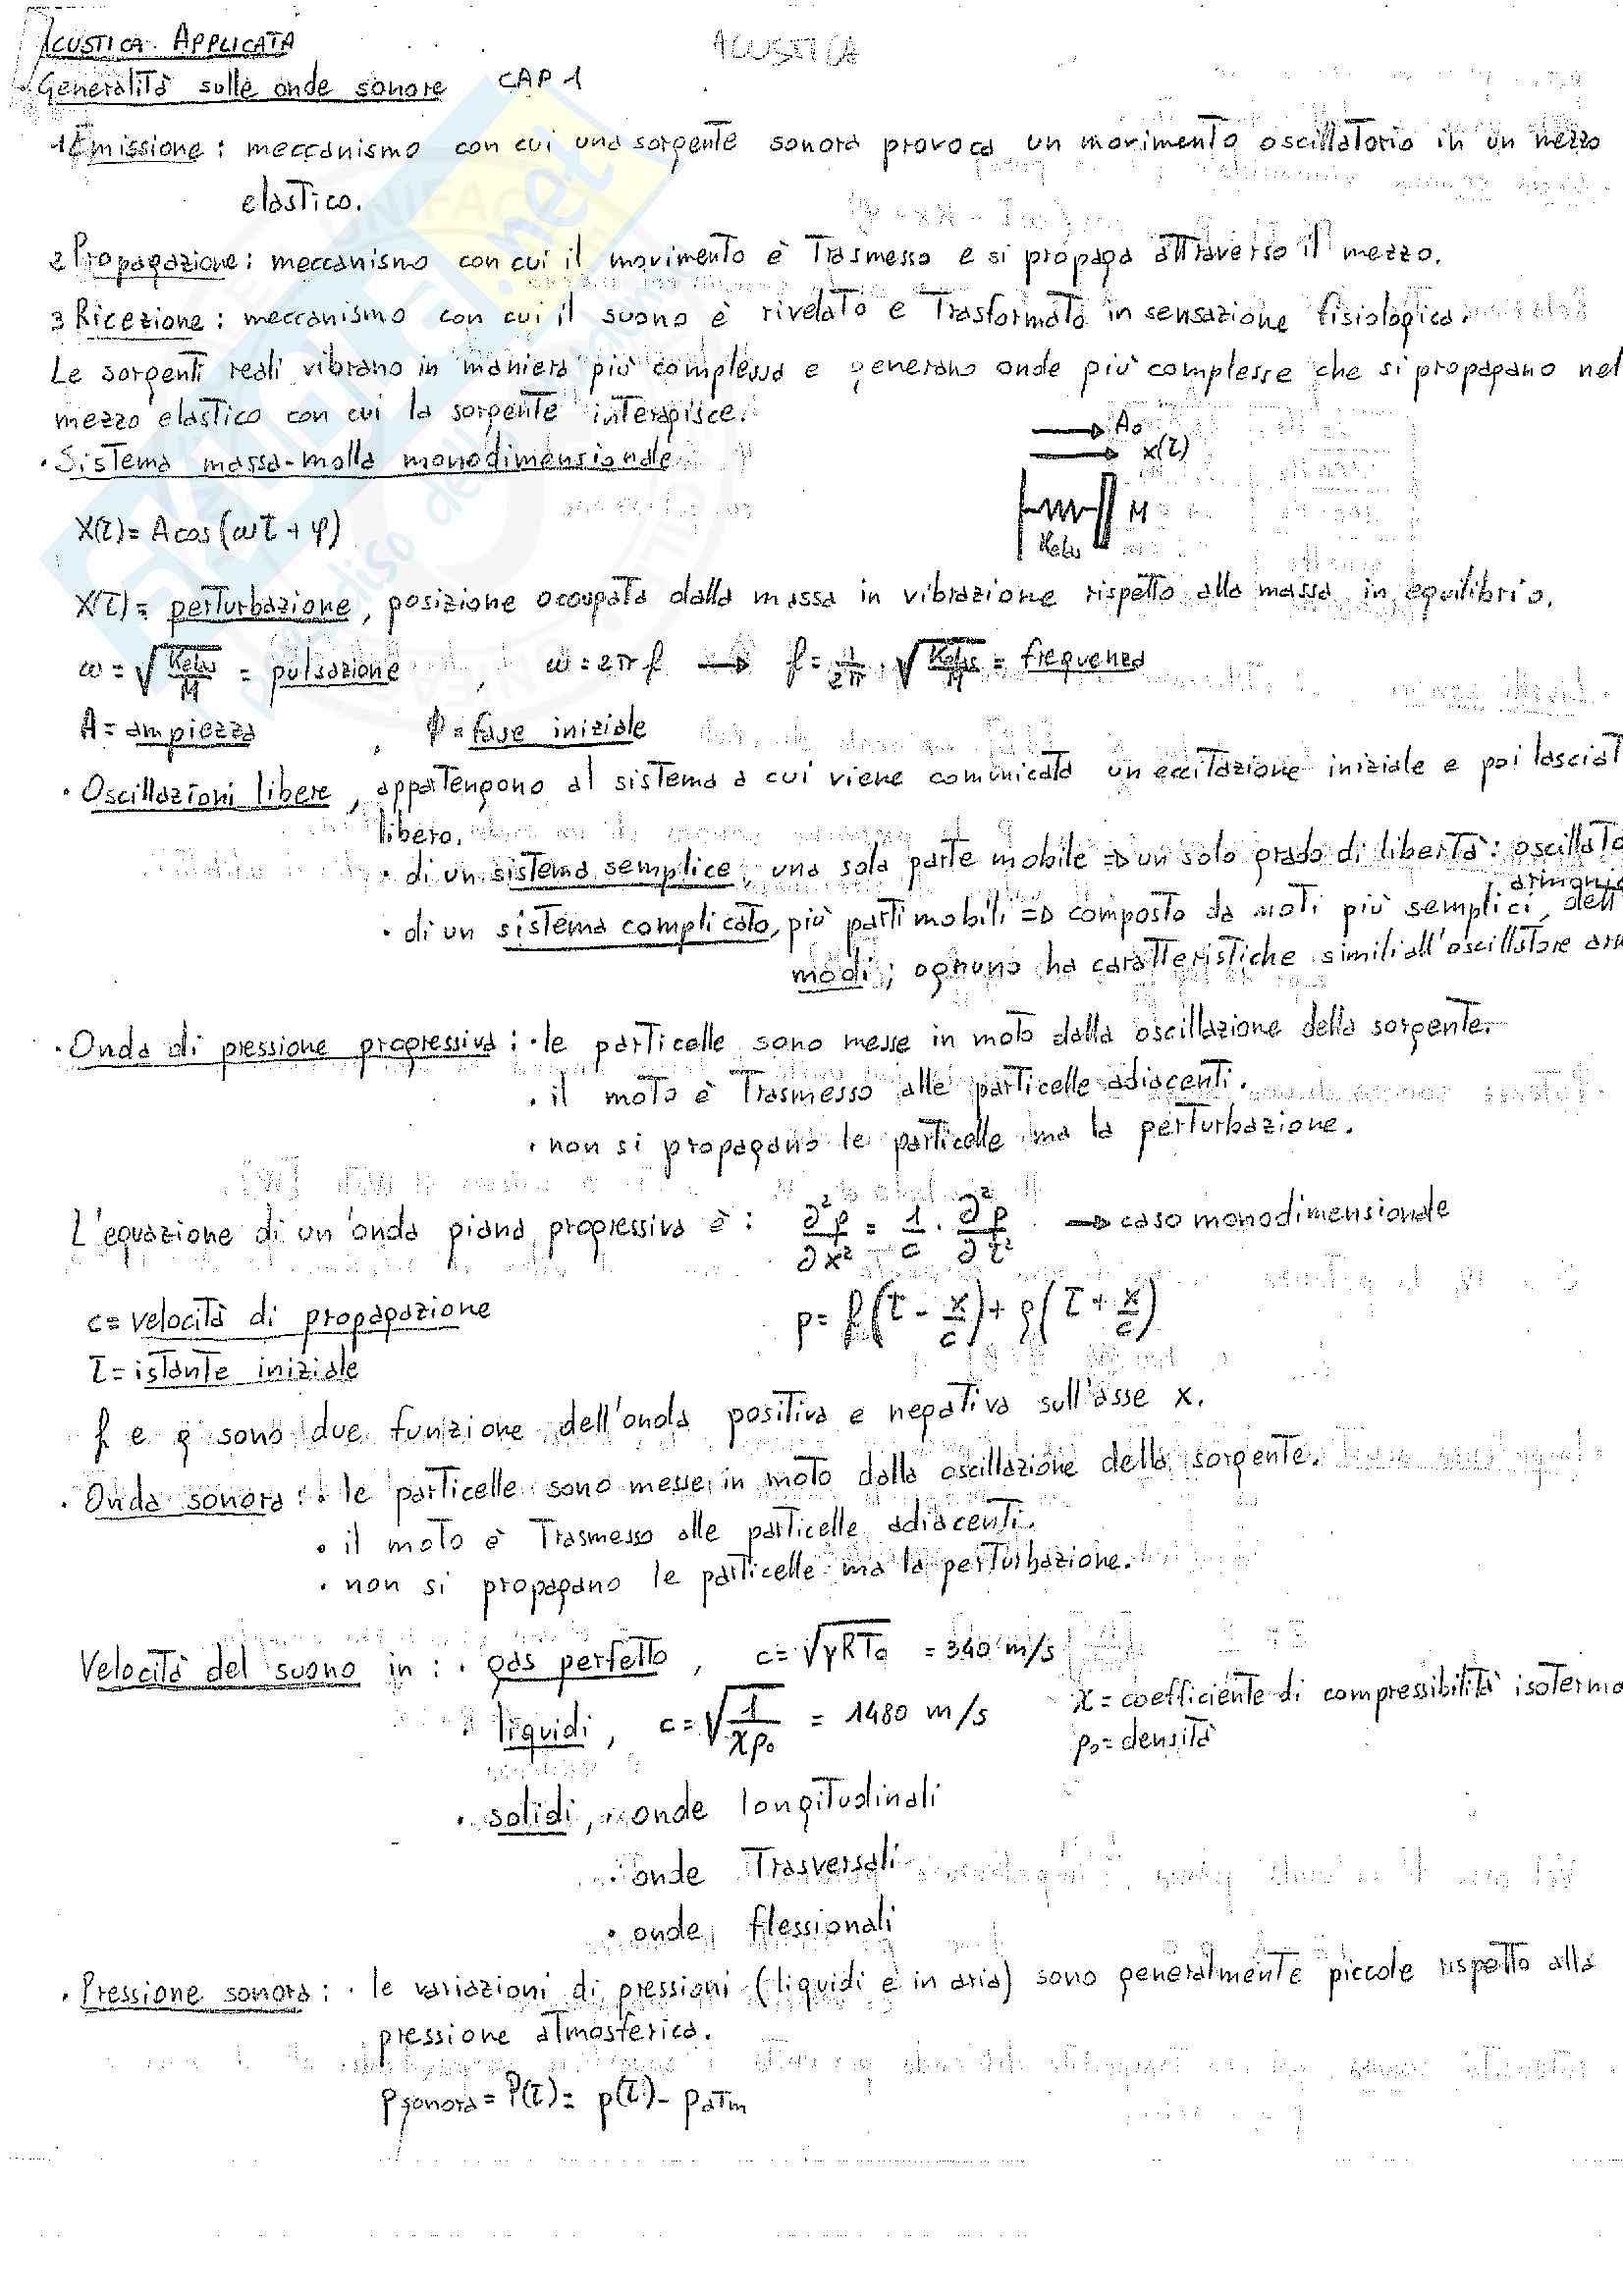 ACUSTICA APPLICATA
ACUSTICA
Generalità sulle onde sonore CAP 1
1 Emissione: meccanismo con cui una sorgente sonora provoca un movimento oscillatorio in un mezzo
elastico.
2 Propagazione: meccanismo con cui il movimento è trasmesso e si propaga attraverso il mezzo.
3 Ricezione: meccanismo con cui il suono è rivelato e trasformato in sensazione fisiologica.
Le sorgenti reali vibrano in maniera più complessa e generano onde più complesse che si propagano nel
mezzo elastico con cui la sorgente interagisce.
A₀
x(τ)
• Sistema massa-molla monodimensionale
M
Kelas
X(τ) = A cos(ωτ + φ)
X(τ) = perturbazione, posizione occupata dalla massa in vibrazione rispetto alla massa in equilibrio.
ω = √(Kelas/M) = pulsazione, ω = 2πf → f = 1/2π · √(Kelas/M) = frequenza
A = ampiezza, φ = fase iniziale
• Oscillazioni libere, appartengono al sistema a cui viene comunicata un eccitazione iniziale e poi lasciat
libero.
• di un sistema semplice, una sola parte mobile ⇒ un solo grado di libertà: oscillato
armonic
• di un sistema complicato, più parti mobili ⇒ composto da moti più semplici, dett
modi; ognuno ha caratteristiche simili all'oscillatore arm
• Onda di pressione progressiva: • le particelle sono messe in moto dalla oscillazione della sorgente.
• il moto è trasmesso alle particelle adiacenti.
• non si propagano le particelle ma la perturbazione.
L'equazione di un'onda piana progressiva è: ∂²p/∂x² = 1/c · ∂²p/∂τ² → caso monodimensionale
c = velocità di propagazione
p = f(τ - x/c) + g(τ + x/c)
τ = istante iniziale
f e g sono due funzione dell'onda positiva e negativa sull'asse x.
• Onda sonora: • le particelle sono messe in moto dalla oscillazione della sorgente.
• il moto è trasmesso alle particelle adiacenti.
• non si propagano le particelle ma la perturbazione.
Velocità del suono in: • gas perfetto, c = √(γRT₀) = 340 m/s
• liquidi, c = √(1/χρ₀) = 1480 m/s χ = coefficiente di compressibilità isoterma
ρ₀ = densità
• solidi, • onde longitudinali
• onde trasversali
• onde flessionali
• Pressione sonora: • le variazioni di pressioni (liquidi e in aria) sono generalmente piccole rispetto alla
pressione atmosferica.
Psonora = P(τ) = p(τ) - patm